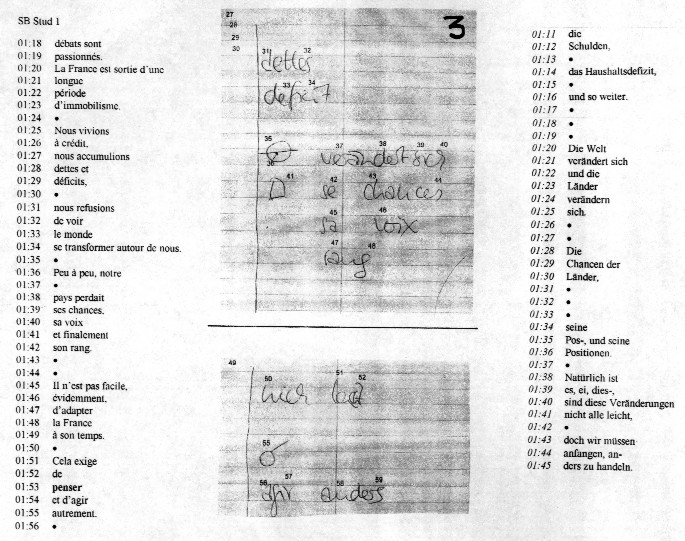 SB Stud 1
01:18 débats sont
01:19 passionnés.
01:20 La France est sortie d'une
01:21 longue
01:22 période
01:23 d'immobilisme.
01:24 •
01:25 Nous vivions
01:26 à crédit,
01:27 nous accumulions
01:28 dettes et
01:29 déficits,
01:30 •
01:31 nous refusions
01:32 de voir
01:33 le monde
01:34 se transformer autour de nous.
01:35 •
01:36 Peu à peu, notre
01:37 •
01:38 pays perdait
01:39 ses chances.
01:40 sa voix
01:41 et finalement
01:42 son rang.
01:43 •
01:44 •
01:45 Il n'est pas facile,
01:46 évidemment,
01:47 d'adapter
01:48 la France
01:49 à son temps.
01:50 •
01:51 Cela exige
01:52 de
01:53 penser
01:54 et d'agir
01:55 autrement.
01:56 •
27
28
29
30
3
31 32
dettes
33 34
35
37 38 39 40
verändert sich
36
41 42 43 44
se chances
45 46
sa voix
47 48
rang
49
50 51 52
55
56 57 58 59
anders
01:11 die
01:12 Schulden,
01:13 •
01:14 das Haushaltsdefizit,
01:15 •
01:16 und so weiter.
01:17 •
01:18 •
01:19 •
01:20 Die Welt
01:21 verändert sich
01:22 und die
01:23 Länder
01:24 verändern
01:25 sich.
01:26 •
01:27 •
01:28 Die
01:29 Chancen der
01:30 Länder,
01:31 •
01:32 •
01:33 •
01:34 seine
01:35 Pos-, und seine
01:36 Positionen.
01:37 •
01:38 Natürlich ist
01:39 es, ei, dies-,
01:40 sind diese Veränderungen
01:41 nicht alle leicht,
01:42 •
01:43 doch wir müssen
01:44 anfangen, an-
01:45 ders zu handeln.